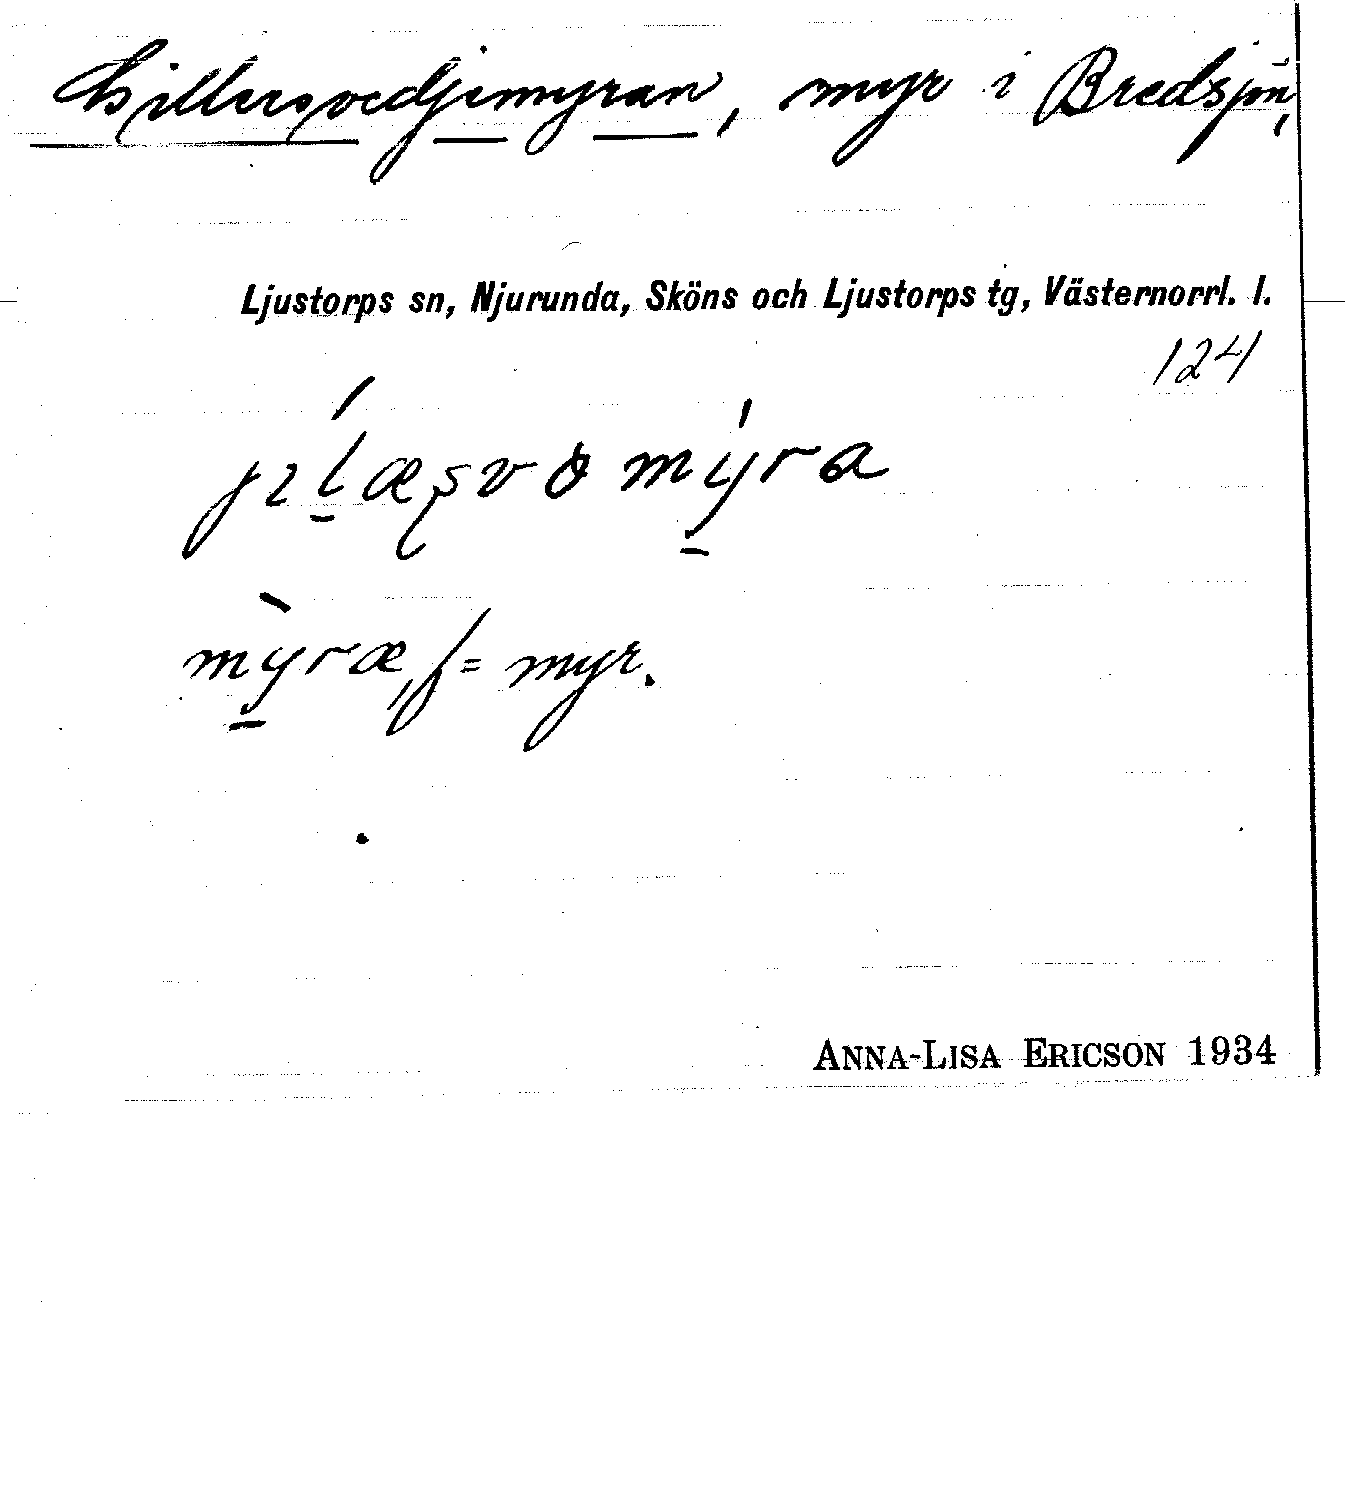 Gillersvedjemyran, myr i Bredsjön,
Ljustorps sn, Njurunda, Sköns och Ljustorps tg, Västernorrl. l.
124
mỳræ, f = myr.
ANNA-LISA ERICSON 1934